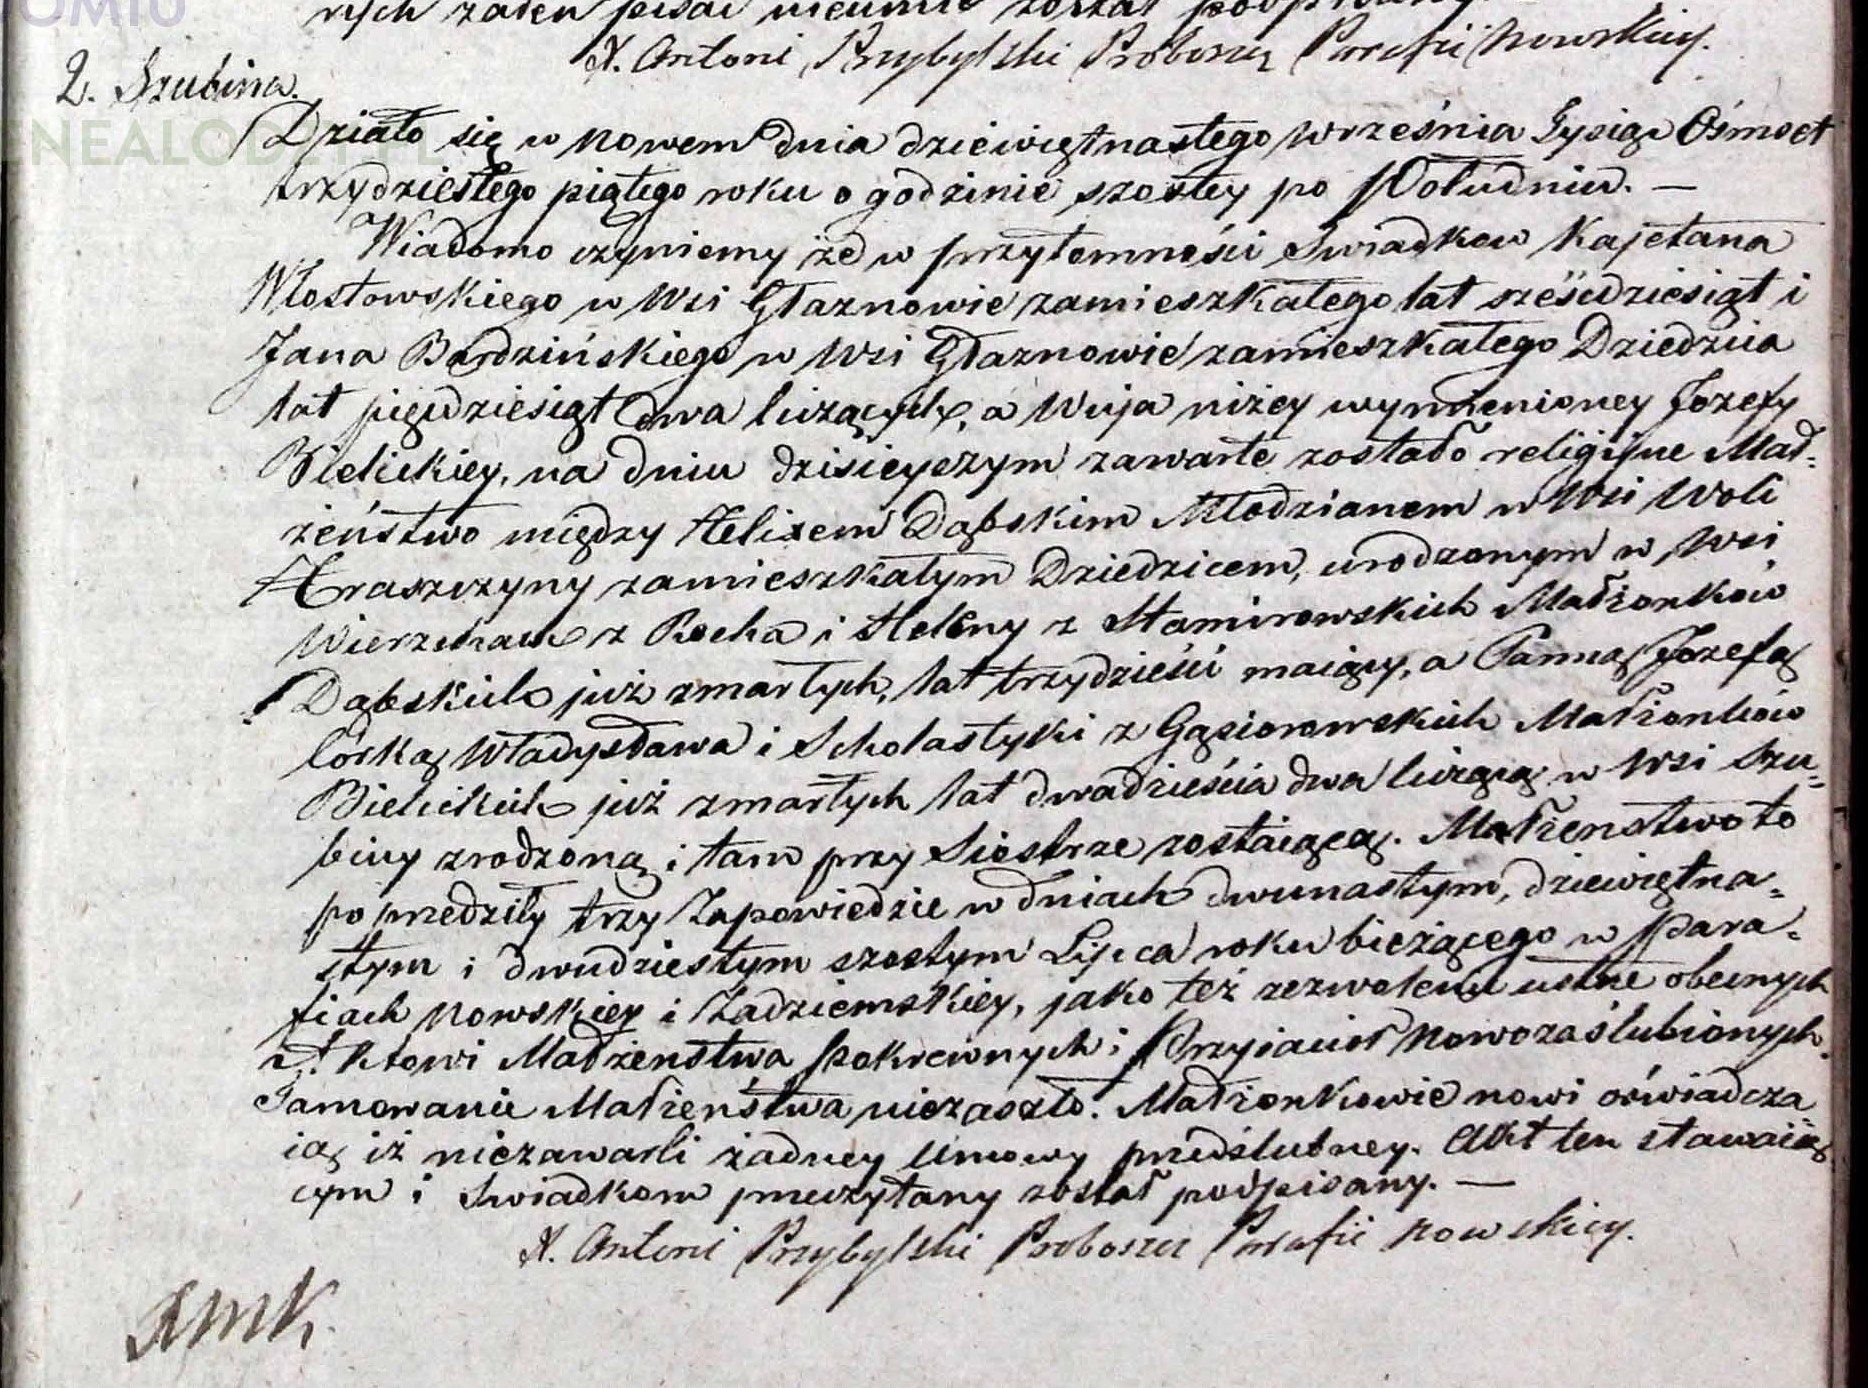 OMIU
ENEALODZY.PL
rych żaden pisać nieumie został podpisany
X. Antoni Przybylski Proboszcz Parafii Nowskiey.
2. Szubina.
Działo się w Nowem dnia dziewiętnastego Września Tysiąc Ośmset
trzydziestego piątego roku o godzinie szostey po Południu. —
Wiadomo czyniemy że w przytomności Swiadkow Kajetana
Włostowskiego w Wsi Głaznowie zamieszkałego lat sześćdziesiąt i
Jana Bardzińskiego w Wsi Głaznowie zamieszkałego Dziedzica
lat pięćdziesiąt dwa liczących, a Wuja niżey wymienioney Jozefy
Bielickiey, na dniu dzisieyszym zawarte zostało religijne Mał-
żeństwo między Felixem Dąbskim Młodzianem w Wsi Woli
Chraszczyny zamieszkałym Dziedzicem, urodzonym w Wsi
Wierzchach z Rocha i Heleny z Stamirowskich Małżonków
Dąbskich już zmarłych, lat trzydzieści maiący, a Panną Jozefą
Corką Władysława i Scholastyki z Gąsiorowskich Małżonków
Bielickich już zmarłych lat dwadzieścia dwa liczącą w Wsi Szu-
biny zrodzoną i tam przy Siostrze zostaiącą. Małżenstwo to
poprzedziły trzy Zapowiedzie w dniach dwunastym, dziewiętna-
stym i dwudziestym szostym Lipca roku bieżącego w Para-
fiach Nowskiey i Zadziemskiey, jako też zezwolenie ustne obecnych
Aktowi Małżenstwa pokrewnych i Przyiaciół Nowozaślubionych.
Tamowanie Małżeństwa niezaszło. Małżonkowie nowi oświadcza
ią iż niezawarli żadney Umowy przedślubney. Akt ten stawaią
cym i Swiadkom przeczytany został podpisany. —
X. Antoni Przybylski Proboszcz Parafii Nowskiey.